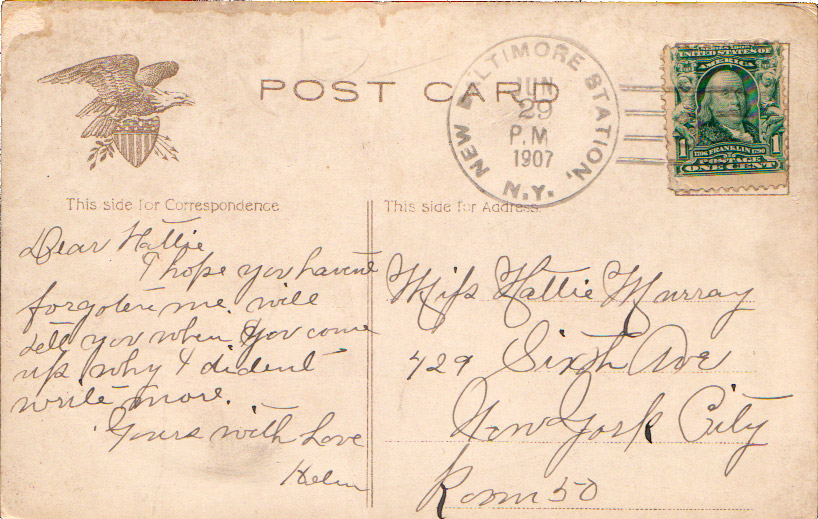 POST CARD
NEW BALTIMORE STATION,
JUN
29
P.M
1907
N.Y.
UNITED STATES OF
AMERICA
1706 FRANKLIN 1790
1 POSTAGE 1
ONE CENT
This side for Correspondence
This side for Address.
Dear Hattie
I hope you havent
forgoten me. will
tell you when you come
up why I dident
write more.
Yours with Love
Helen
Miss Hattie Murray
429 Sixth Ave
New York City
Room 50